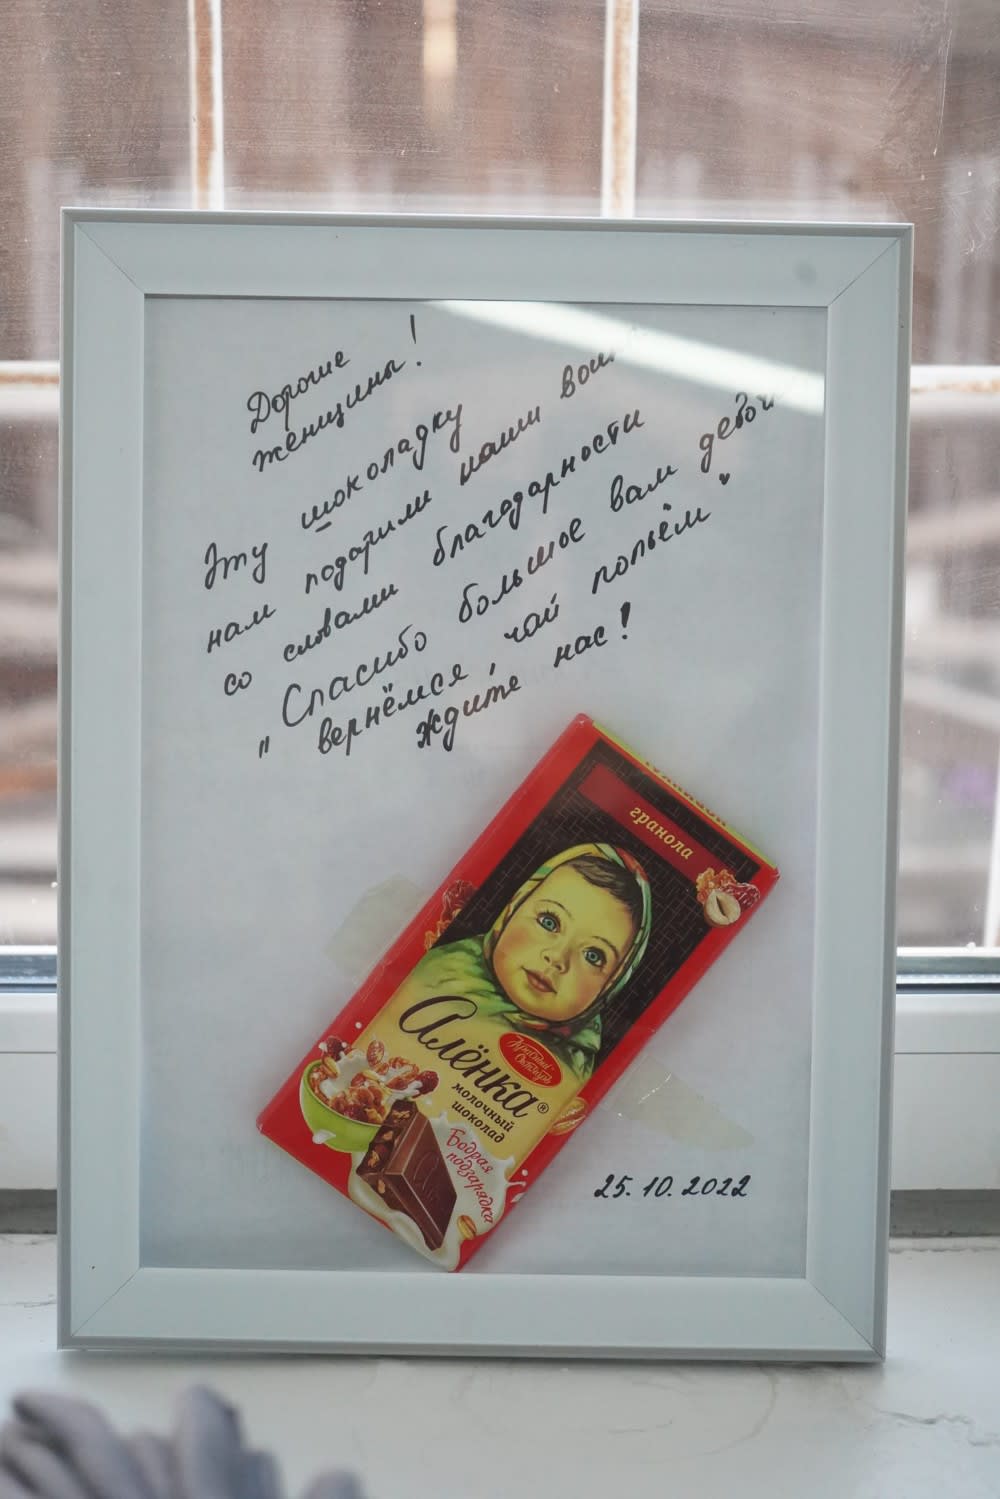 Дорогие
женщины!
Эту шоколадку
нам подарили наши
со словами благодарности
„Спасибо большое вам
вернёмся, чай попьём"
ждите нас!
гранола
Алёнка®
Красный
Октябрь
молочный
шоколад
Бодрая
подзарядка
25.10.2022